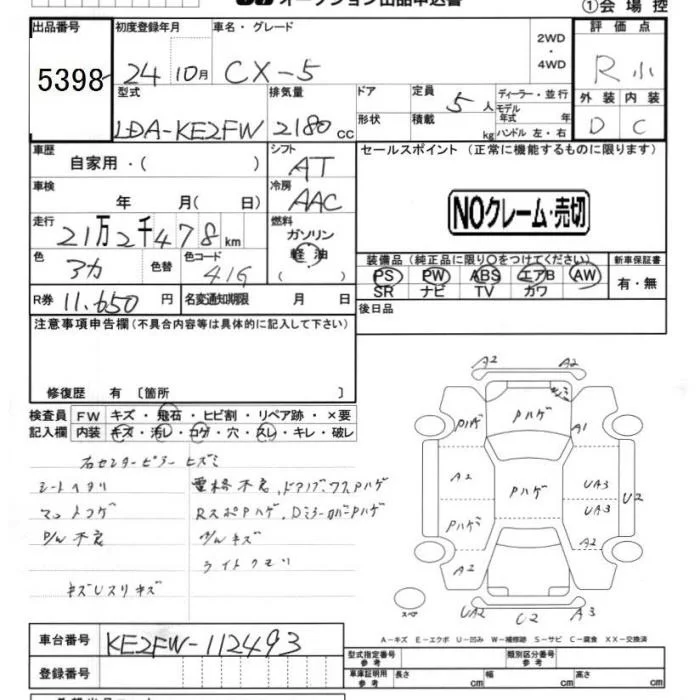 オークション出品申込書
①会場控
出品番号 初度登録年月 車名・グレード 評価点
5398 24 10月 CX-5 2WD・4WD R 小
型式 排気量 ドア 定員 5人 ディーラー・並行 外装 内装
LDA-KE2FW 2180cc 形状 積載 kg モデル年式 年 ハンドル 左・右 D C
車歴 自家用・( ) シフト AT セールスポイント (正常に機能するものに限ります)
車検 年 月( 日) 冷房 AAC
NOクレーム・売切
走行 21万2千478km 燃料 ガソリン 軽油 ( )
色 アカ 色替 色コード 41G
装備品(純正品に限り○をつけてください) 新車保証書
PS PW ABS エアB AW 有・無
SR ナビ TV カワ
R券 11,650円 名変通知期限 月 日 後日品
注意事項申告欄(不具合内容等は具体的に記入して下さい)
修復歴 有 [箇所 ]
検査員 FW キズ・飛石・ヒビ割・リペア跡・×要
記入欄 内装 キズ・汚レ・コゲ・穴・スレ・キレ・破レ
右センターピラーヒズミ
シートヘタリ 電格不良、ドアノブ
マットコゲ RスポPハゲ、DミラーカバーPハゲ
P/W不良
ライトクモリ
A2 A2
Pハゲ
Pハゲ A1
A2 Pハゲ UA3
UA3 U2
Pハゲ
A2 A2
スペア UA2 C2 A3
A-キズ E-エクボ U-凹み W-補修跡 S-サビ C-腐食 XX-交換済
車台番号 KE2FW-112493
登録番号
型式指定番号 参考 類別区分番号 参考
車庫証明用 参考 長さ cm 幅 cm 高さ cm